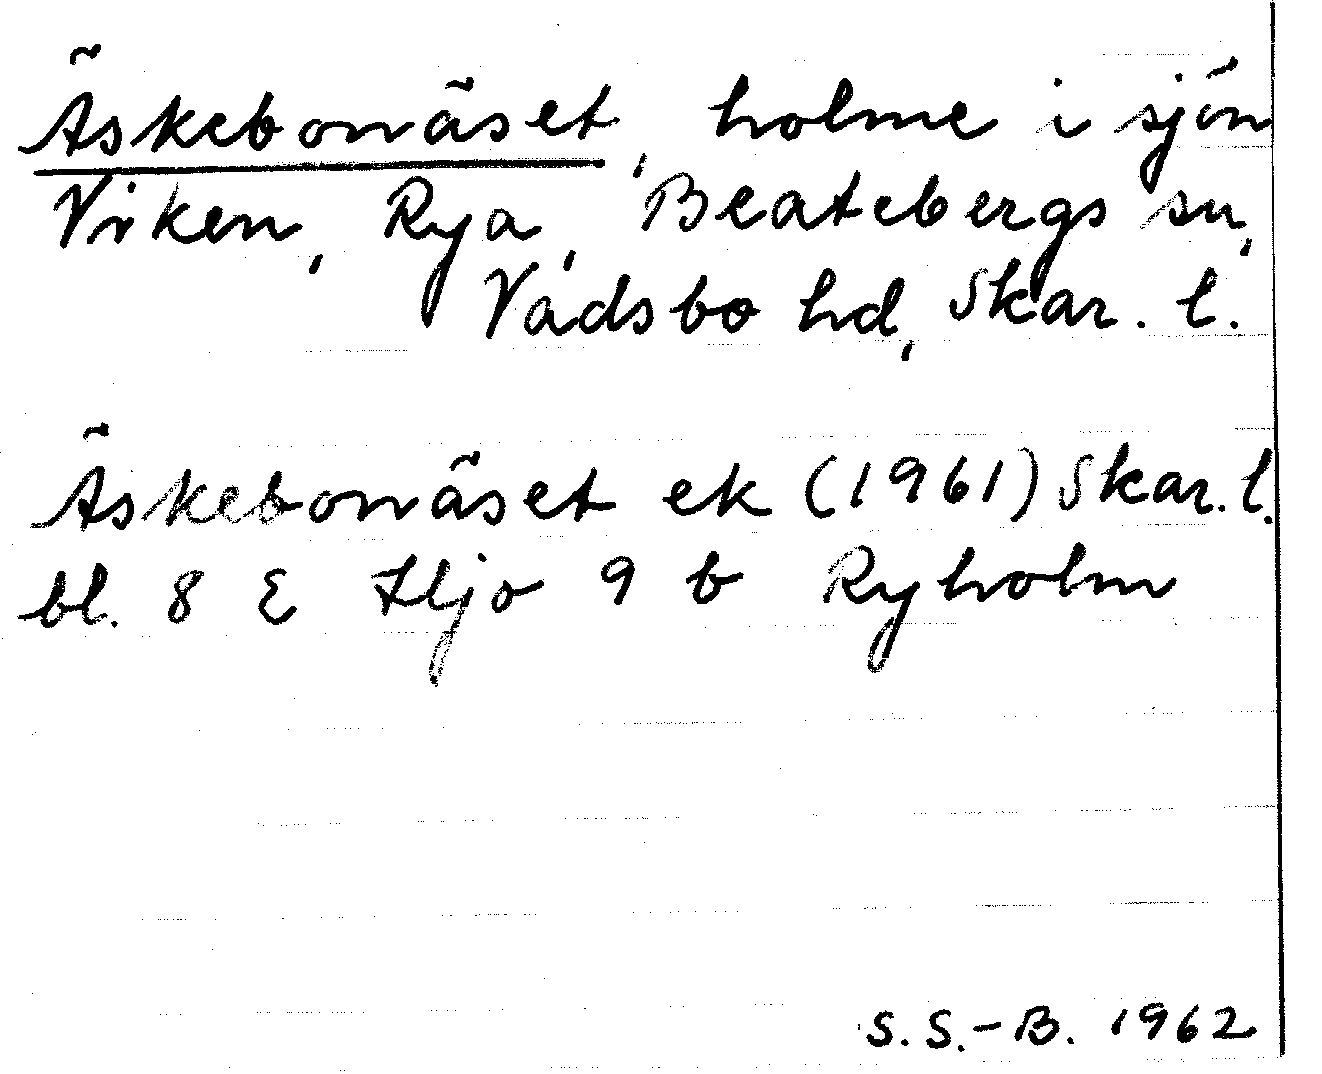 Äskebonäset, holme i sjön
Viken, Rya, Beatebergs sn,
Vadsbo hd, Skar. l.
Äskebonäset ek (1961) Skar. l.
bl. 8 E Hjo 9 b Ryholm
S. S.-B. 1962